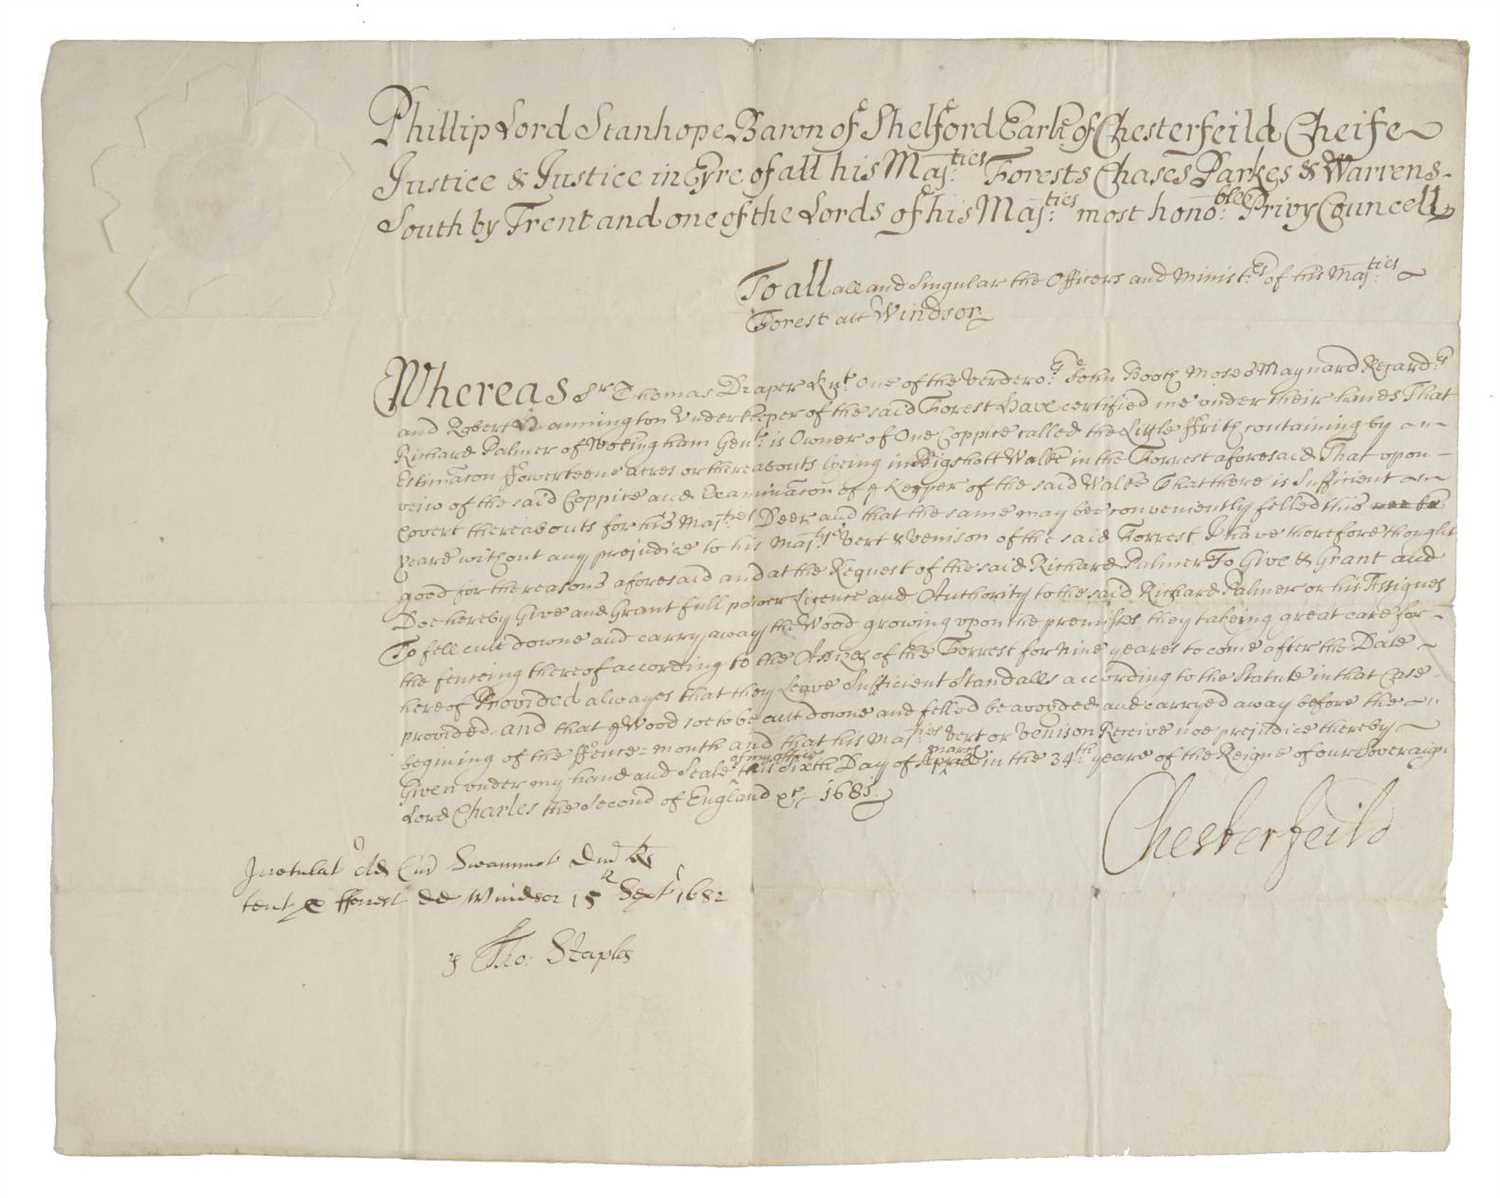 Phillip Lord Stanhope Baron of Shelford Earle of Chesterfeild Cheife
Justice & Justice in Eyre of all his Maj:ties Forests Chases Parkes & Warrens
South by Trent and one of the Lords of his Maj:ties most hono:ble Privy Councell
To all all and Singular the Officers and Minist:rs of his Maj:ties
Forest att Windsor
Whereas Sr Thomas Draper Kt one of the Verdero:rs John Booth Moses Maynard Regard:rs
and Robert Hannington Underkeeper of the said Forest have certified me under their hands That
Richard Palmer of Wokingham Gent: is Owner of One Coppice called the Little ffrith containing by
Estimacon ffowerteene acres or thereabouts lyeing in Bigshott Walke in the Forrest aforesaid That upon
veiw of the said Coppice and Examinacon of ye Keeper of the said Walke That there is Sufficient
Covert thereabouts for his Maj:ties Deer and that the same may bee conveniently felled this
yeare without any prejudice to his Maj:ties Vert & Venison of the said Forrest I have therefore thought
good for the reasons aforesaid and at the Request of the said Richard Palmer To Give & Grant and
Doe hereby Give and Grant full power Licence and Authority to the said Richard Palmer or his Assignes
To fell cutt downe and carry away the Wood growing upon the premisses they takeing great care for
the fenceing thereof according to the Assizes of the Forrest for nine yeares to come after the Date
hereof Provided alwayes that they Leave Sufficient Standalls according to the Statute in that Case
provided. and that ye Wood soe to be cutt downe and felled be avoyded and carryed away before the
begining of the ffence-month and that his Maj:ties Vert or Venison Receive noe prejudice thereby
Given under my hand and Seale of my office this sixth Day of March in the 34th yeare of the Reigne of our Soveraigne
Lord Charles the Second of England &c 1681
Chesterfeild
Irrotulat Ad Cur Swanimot Dni Rs
tent p fforest de Windsor 15 Sept 1682
p Tho: Staples